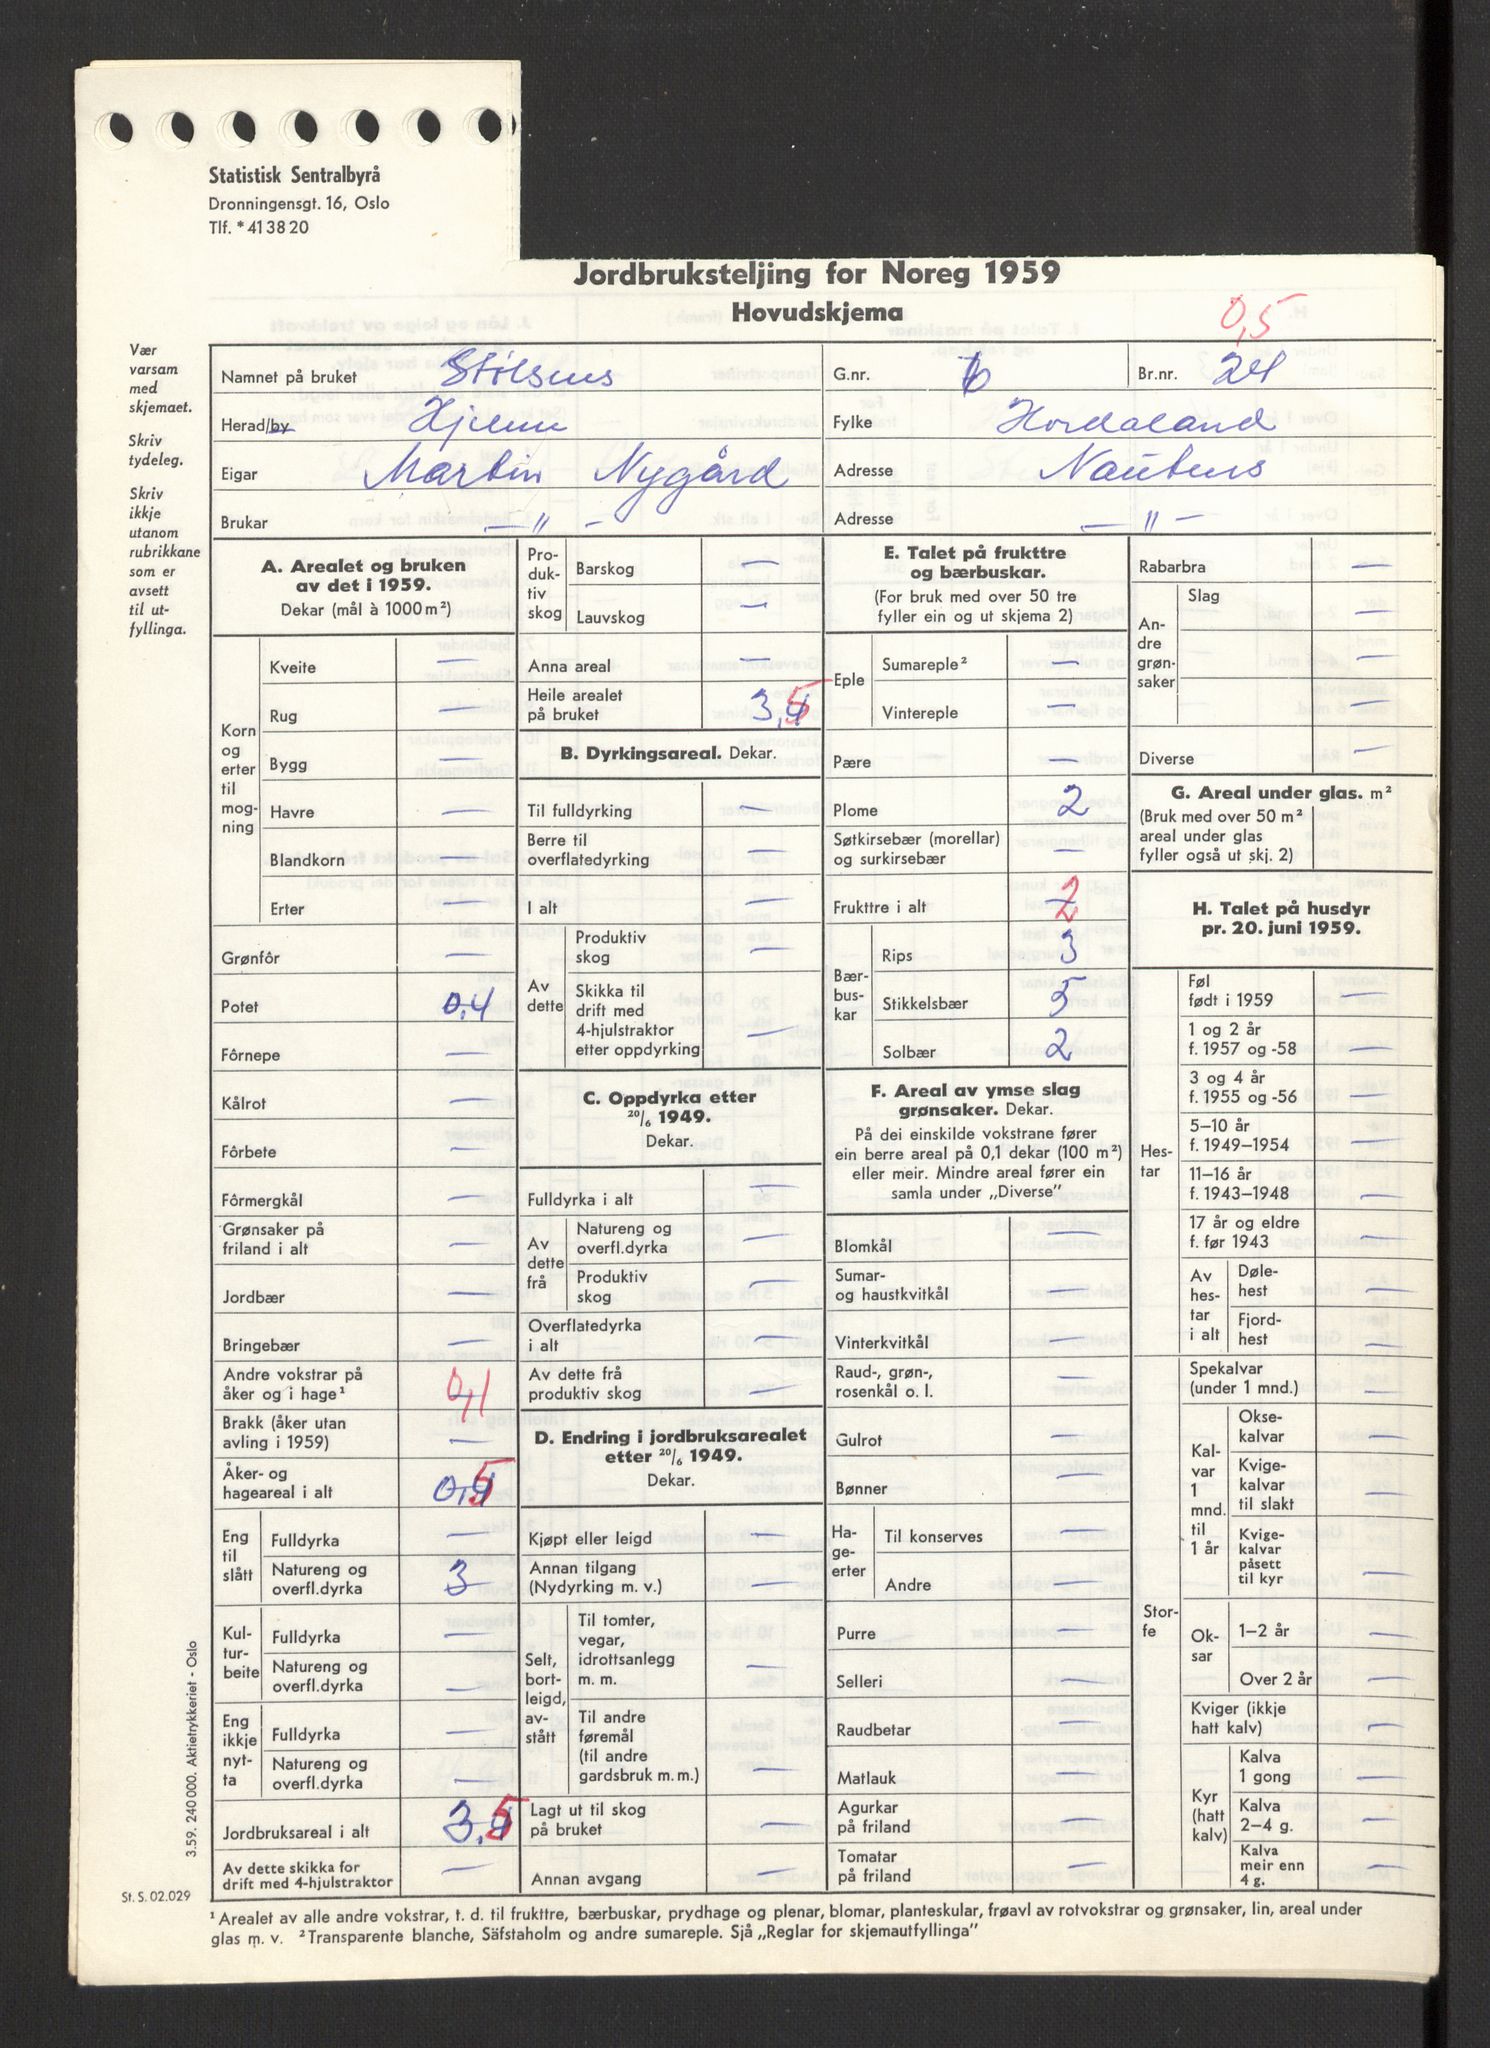 Statistisk Sentralbyrå
Dronningensgt. 16, Oslo
Tlf. * 41 38 20
Jordbruksteljing for Noreg 1959
Hovudskjema
0,5
Vær
varsam
med
skjemaet.
Skriv
tydeleg.
Skriv
ikkje
utanom
rubrikkane
som er
avsett
til ut-
fyllinga.
Namnet på bruket Stølsens G.nr. 6 Br.nr. 24
Herad/by Fylke Hordaland
Eigar Martin Nygård Adresse
Brukar — " — Adresse — " —
A. Arealet og bruken
av det i 1959.
Dekar (mål à 1000 m²)
Korn
og
erter
til
mog-
ning
Kveite —
Rug —
Bygg —
Havre —
Blandkorn —
Erter —
Grønfôr —
Potet 0,4
Fôrnepe —
Kålrot —
Fôrbete —
Fôrmergkål —
Grønsaker på
friland i alt —
Jordbær —
Bringebær —
Andre vokstrar på
åker og i hage¹ 0,1
Brakk (åker utan
avling i 1959) —
Åker- og
hageareal i alt 0,5
Eng
til
slått
Fulldyrka —
Natureng og
overfl.dyrka 3
Kul-
tur-
beite
Fulldyrka —
Natureng og
overfl.dyrka —
Eng
ikkje
nyt-
ta
Fulldyrka —
Natureng og
overfl.dyrka —
Jordbruksareal i alt 3,5
Av dette skikka for
drift med 4-hjulstraktor —
Pro-
duk-
tiv
skog
Barskog —
Lauvskog —
Anna areal —
Heile arealet
på bruket 3,5
B. Dyrkingsareal. Dekar.
Til fulldyrking —
Berre til
overflatedyrking —
I alt —
Av
dette
Produktiv
skog —
Skikka til
drift med
4-hjulstraktor
etter oppdyrking —
C. Oppdyrka etter
20/6 1949.
Dekar.
Fulldyrka i alt —
Av
dette
frå
Natureng og
overfl.dyrka —
Produktiv
skog —
Overflatedyrka
i alt —
Av dette frå
produktiv skog —
D. Endring i jordbruksarealet
etter 20/6 1949.
Dekar.
Kjøpt eller leigd —
Annan tilgang
(Nydyrking m. v.) —
Selt,
bort-
leigd,
av-
stått
Til tomter,
vegar,
idrottsanlegg
m. m. —
Til andre
føremål
(til andre
gardsbruk m. m.) —
Lagt ut til skog
på bruket —
Annan avgang —
E. Talet på frukttre
og bærbuskar.
(For bruk med over 50 tre
fyller ein og ut skjema 2)
Eple
Sumareple² —
Vintereple —
Pære —
Plome 2
Søtkirsebær (morellar)
og surkirsebær —
Frukttre i alt 2
Bær-
bus-
kar
Rips 3
Stikkelsbær 5
Solbær 2
F. Areal av ymse slag
grønsaker. Dekar.
På dei einskilde vokstrane fører
ein berre areal på 0,1 dekar (100 m²)
eller meir. Mindre areal fører ein
samla under „Diverse”
Blomkål —
Sumar-
og haustkvitkål —
Vinterkvitkål —
Raud-, grøn-,
rosenkål o. l. —
Gulrot —
Bønner —
Ha-
ge-
erter
Til konserves —
Andre —
Purre —
Selleri —
Raudbetar —
Matlauk —
Agurkar
på friland —
Tomatar
på friland —
Rabarbra —
An-
dre
grøn-
saker
Slag
—
—
—
Diverse —
G. Areal under glas. m²
(Bruk med over 50 m²
areal under glas
fyller også ut skj. 2) —
H. Talet på husdyr
pr. 20. juni 1959.
Hes-
tar
Føl
født i 1959 —
1 og 2 år
f. 1957 og -58 —
3 og 4 år
f. 1955 og -56 —
5–10 år
f. 1949–1954 —
11–16 år
f. 1943–1948 —
17 år og eldre
f. før 1943 —
Av
hes-
tar
i alt
Døle-
hest —
Fjord-
hest —
Stor-
fe
Spekalvar
(under 1 mnd.) —
Kal-
var
1
mnd.
til
1 år
Okse-
kalvar —
Kvige-
kalvar
til slakt —
Kvige-
kalvar
påsett
til kyr —
Ok-
sar
1–2 år —
Over 2 år —
Kviger (ikkje
hatt kalv) —
Kyr
(hatt
kalv)
Kalva
1 gong —
Kalva
2–4 g. —
Kalva
meir enn
4 g. —
3.59. 240 000. Aktietrykkeriet - Oslo
St. S. 02.029
¹ Arealet av alle andre vokstrar, t. d. til frukttre, bærbuskar, prydhage og plenar, blomar, planteskular, frøavl av rotvokstrar og grønsaker, lin, areal under
glas m. v. ² Transparente blanche, Säfstaholm og andre sumareple. Sjå „Reglar for skjemautfyllinga”